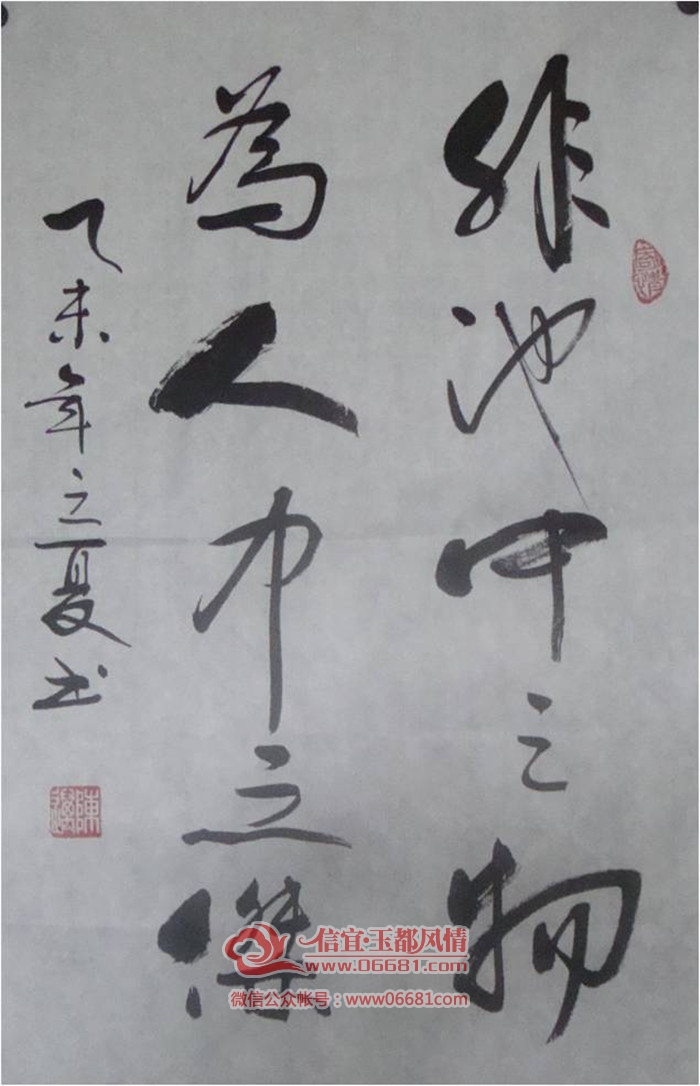 非池中之物
為人中之傑
乙未年之夏书
信宜·玉都风情
www.06681.com
微信公众帐号：www06681com